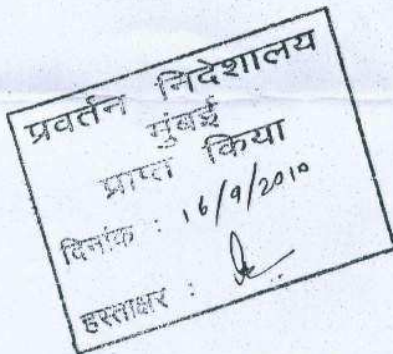 प्रवर्तन निदेशालय
मुंबई
प्राप्त किया
दिनांक : 16/9/2010
हस्ताक्षर :